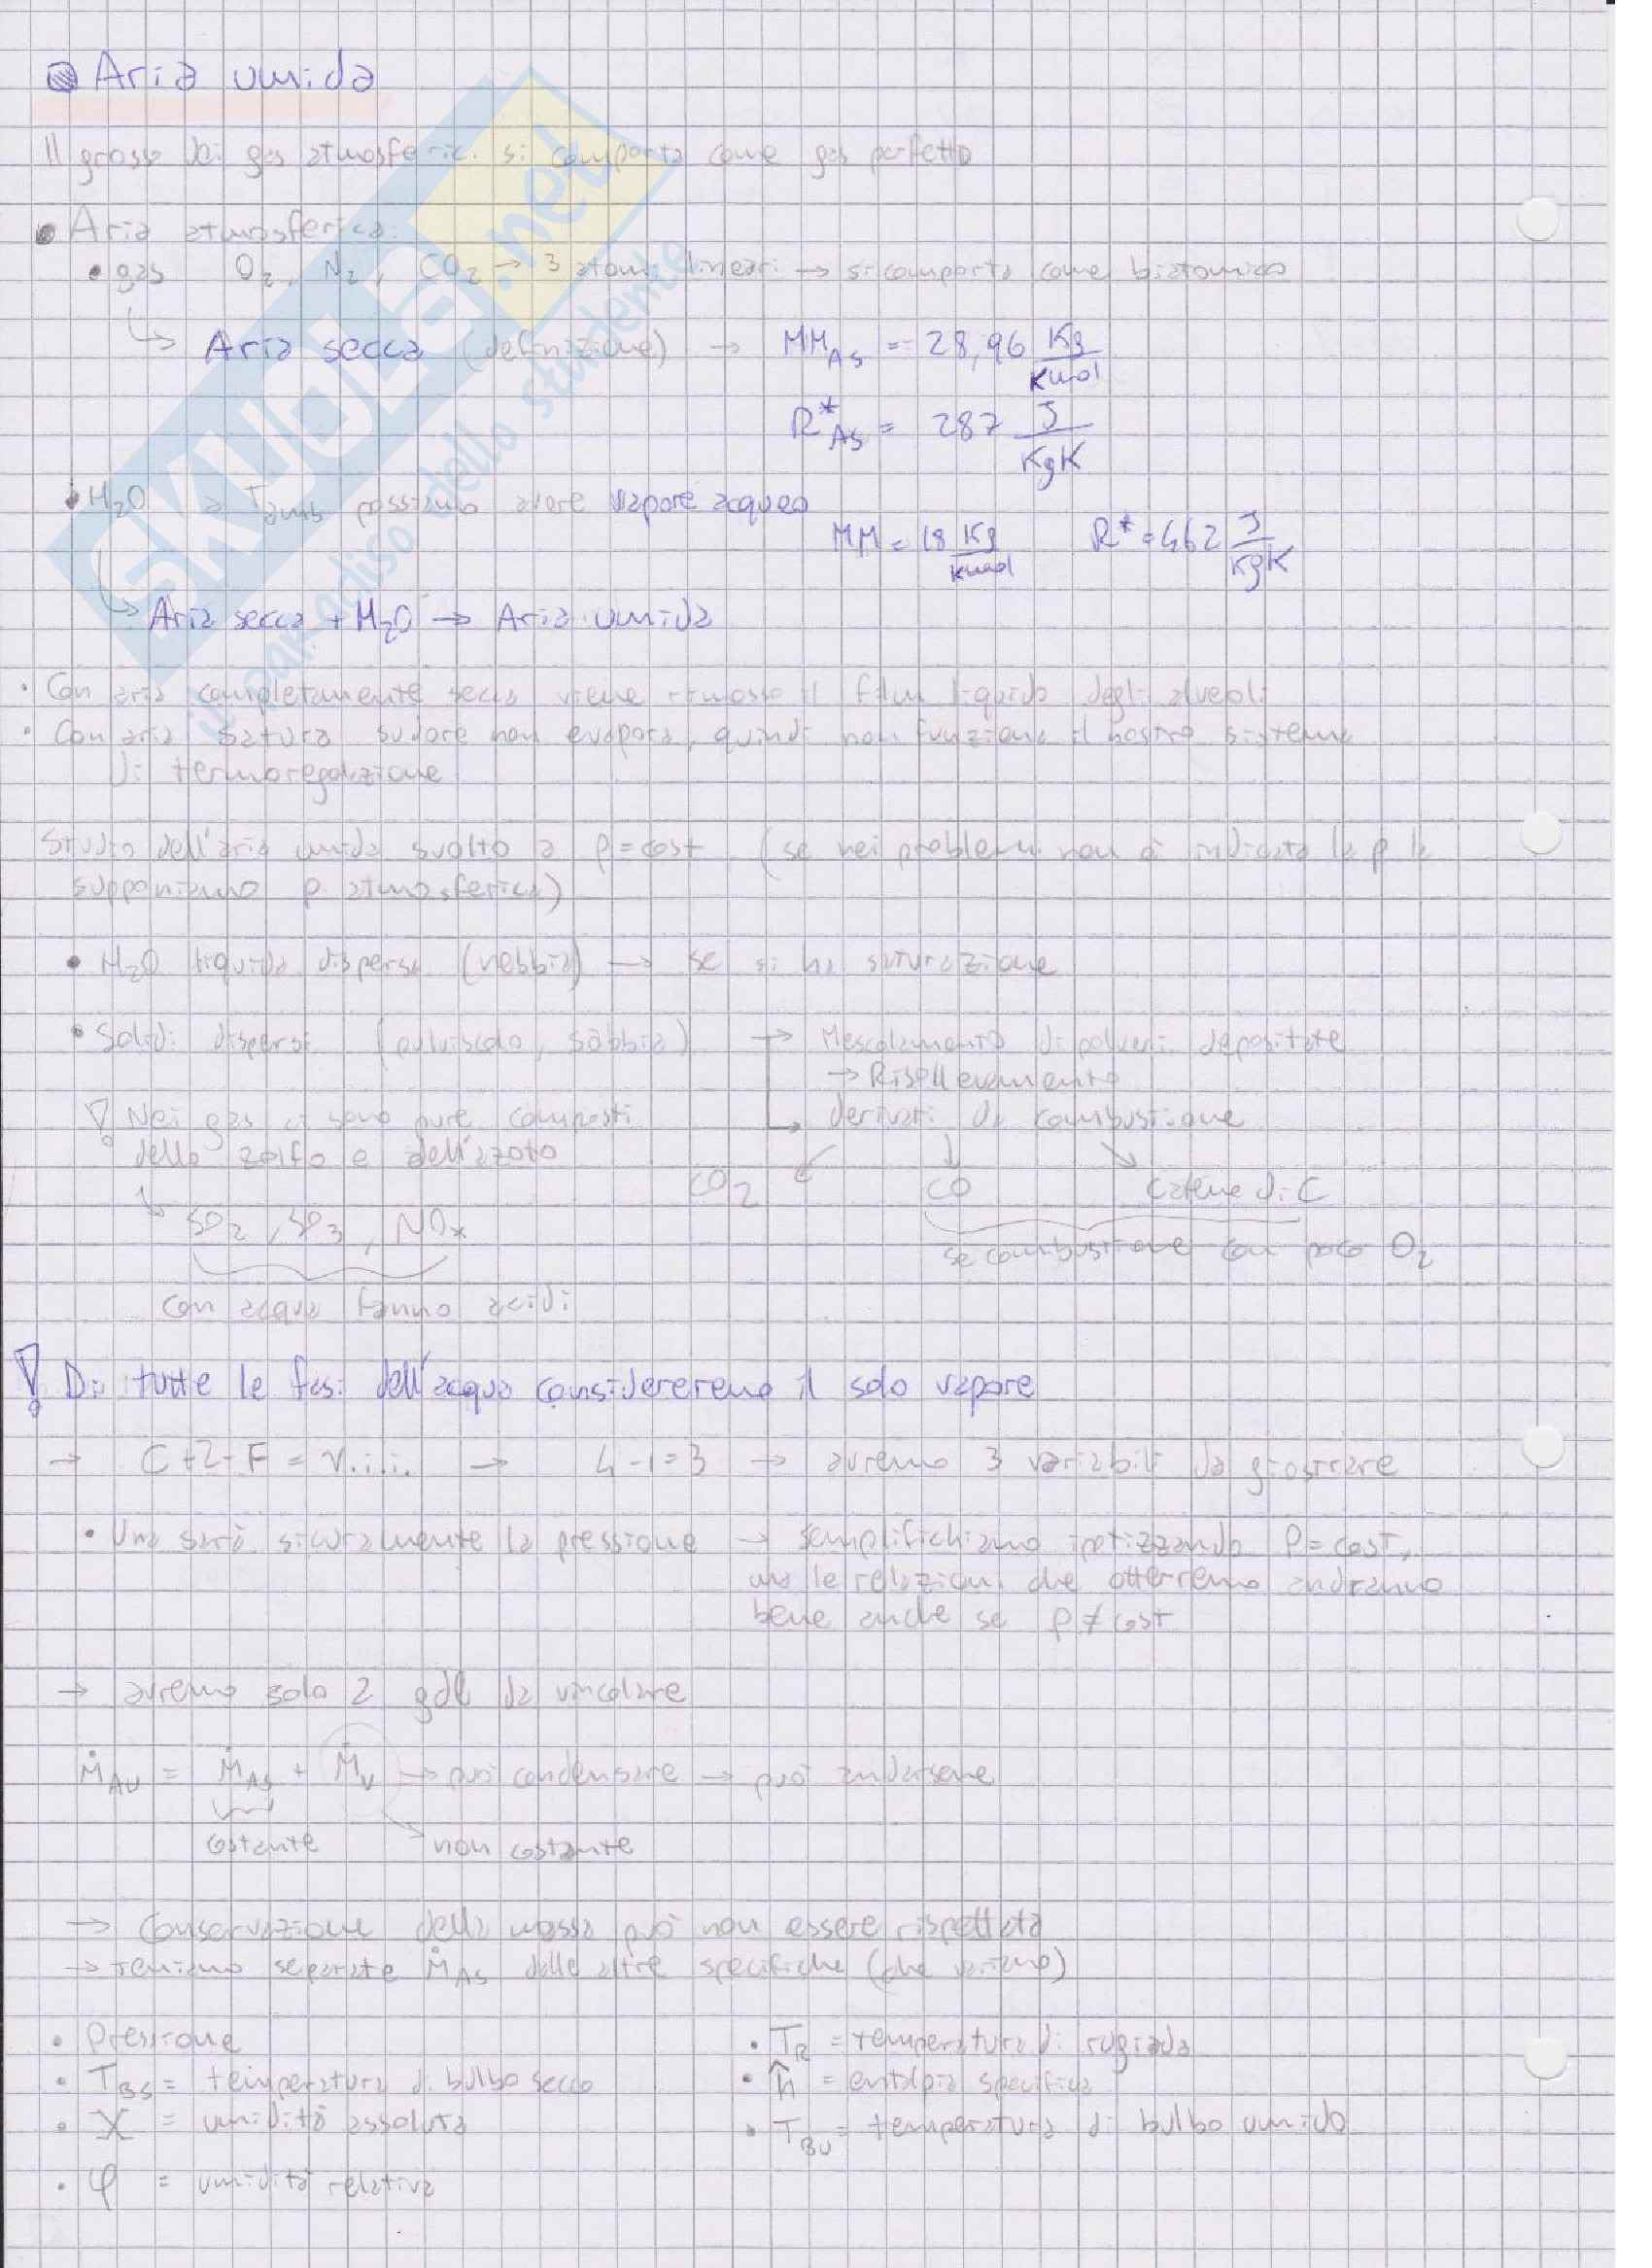 Aria umida
Il grosso dei gas atmosferici si comporta come gas perfetto
• Aria atmosferica:
• gas O2, N2, CO2 → 3 atomi lineari → si comporta come biatomico
↳ Aria secca (definizione) → MM_AS = 28,96 Kg/Kmol
R*_AS = 287 J/KgK
• H2O a T_amb possiamo avere vapore acqueo
MM = 18 Kg/Kmol R* = 462 J/KgK
↳ Aria secca + H2O → Aria umida
• Con aria completamente secca viene rimosso il film liquido degli alveoli
• Con aria satura sudore non evapora, quindi non funziona il nostro sistema
di termoregolazione
Studio dell'aria umida svolto a p=cost (se nei problemi non è indicata la p la
supponiamo p. atmosferica)
• H2O liquida dispersa (nebbia) → se si ha saturazione
• Solidi dispersi (pulviscolo, sabbia) → Mescolamento di polveri depositate
→ Risollevamento
! Nei gas ci sono pure composti → derivati da combustione
dello zolfo e dell'azoto
CO2 CO catene di C
↳ SO2, SO3, NOx
se combustione con poco O2
con acqua fanno acidi
! Di tutte le fasi dell'acqua considereremo il solo vapore
→ C+2-F = V.i.i. → 4-1=3 → avremo 3 variabili da giostrare
• Una sarà sicuramente la pressione → semplifichiamo ipotizzando P=cost,
ma le relazioni che otterremo andranno
bene anche se p≠cost
→ avremo solo 2 gdl da vincolare
Ṁ_AU = Ṁ_AS + Ṁ_V → può condensare → può andarsene
costante non costante
→ Conservazione della massa può non essere rispettata
→ teniamo separate Ṁ_AS dalle altre specifiche (che variano)
• Pressione • T_R = temperatura di rugiada
• T_BS = temperatura di bulbo secco • ĥ = entalpia specifica
• X = umidità assoluta • T_BU = temperatura di bulbo umido
• φ = umidità relativa
SKUOLA.net
il paradiso dello studente